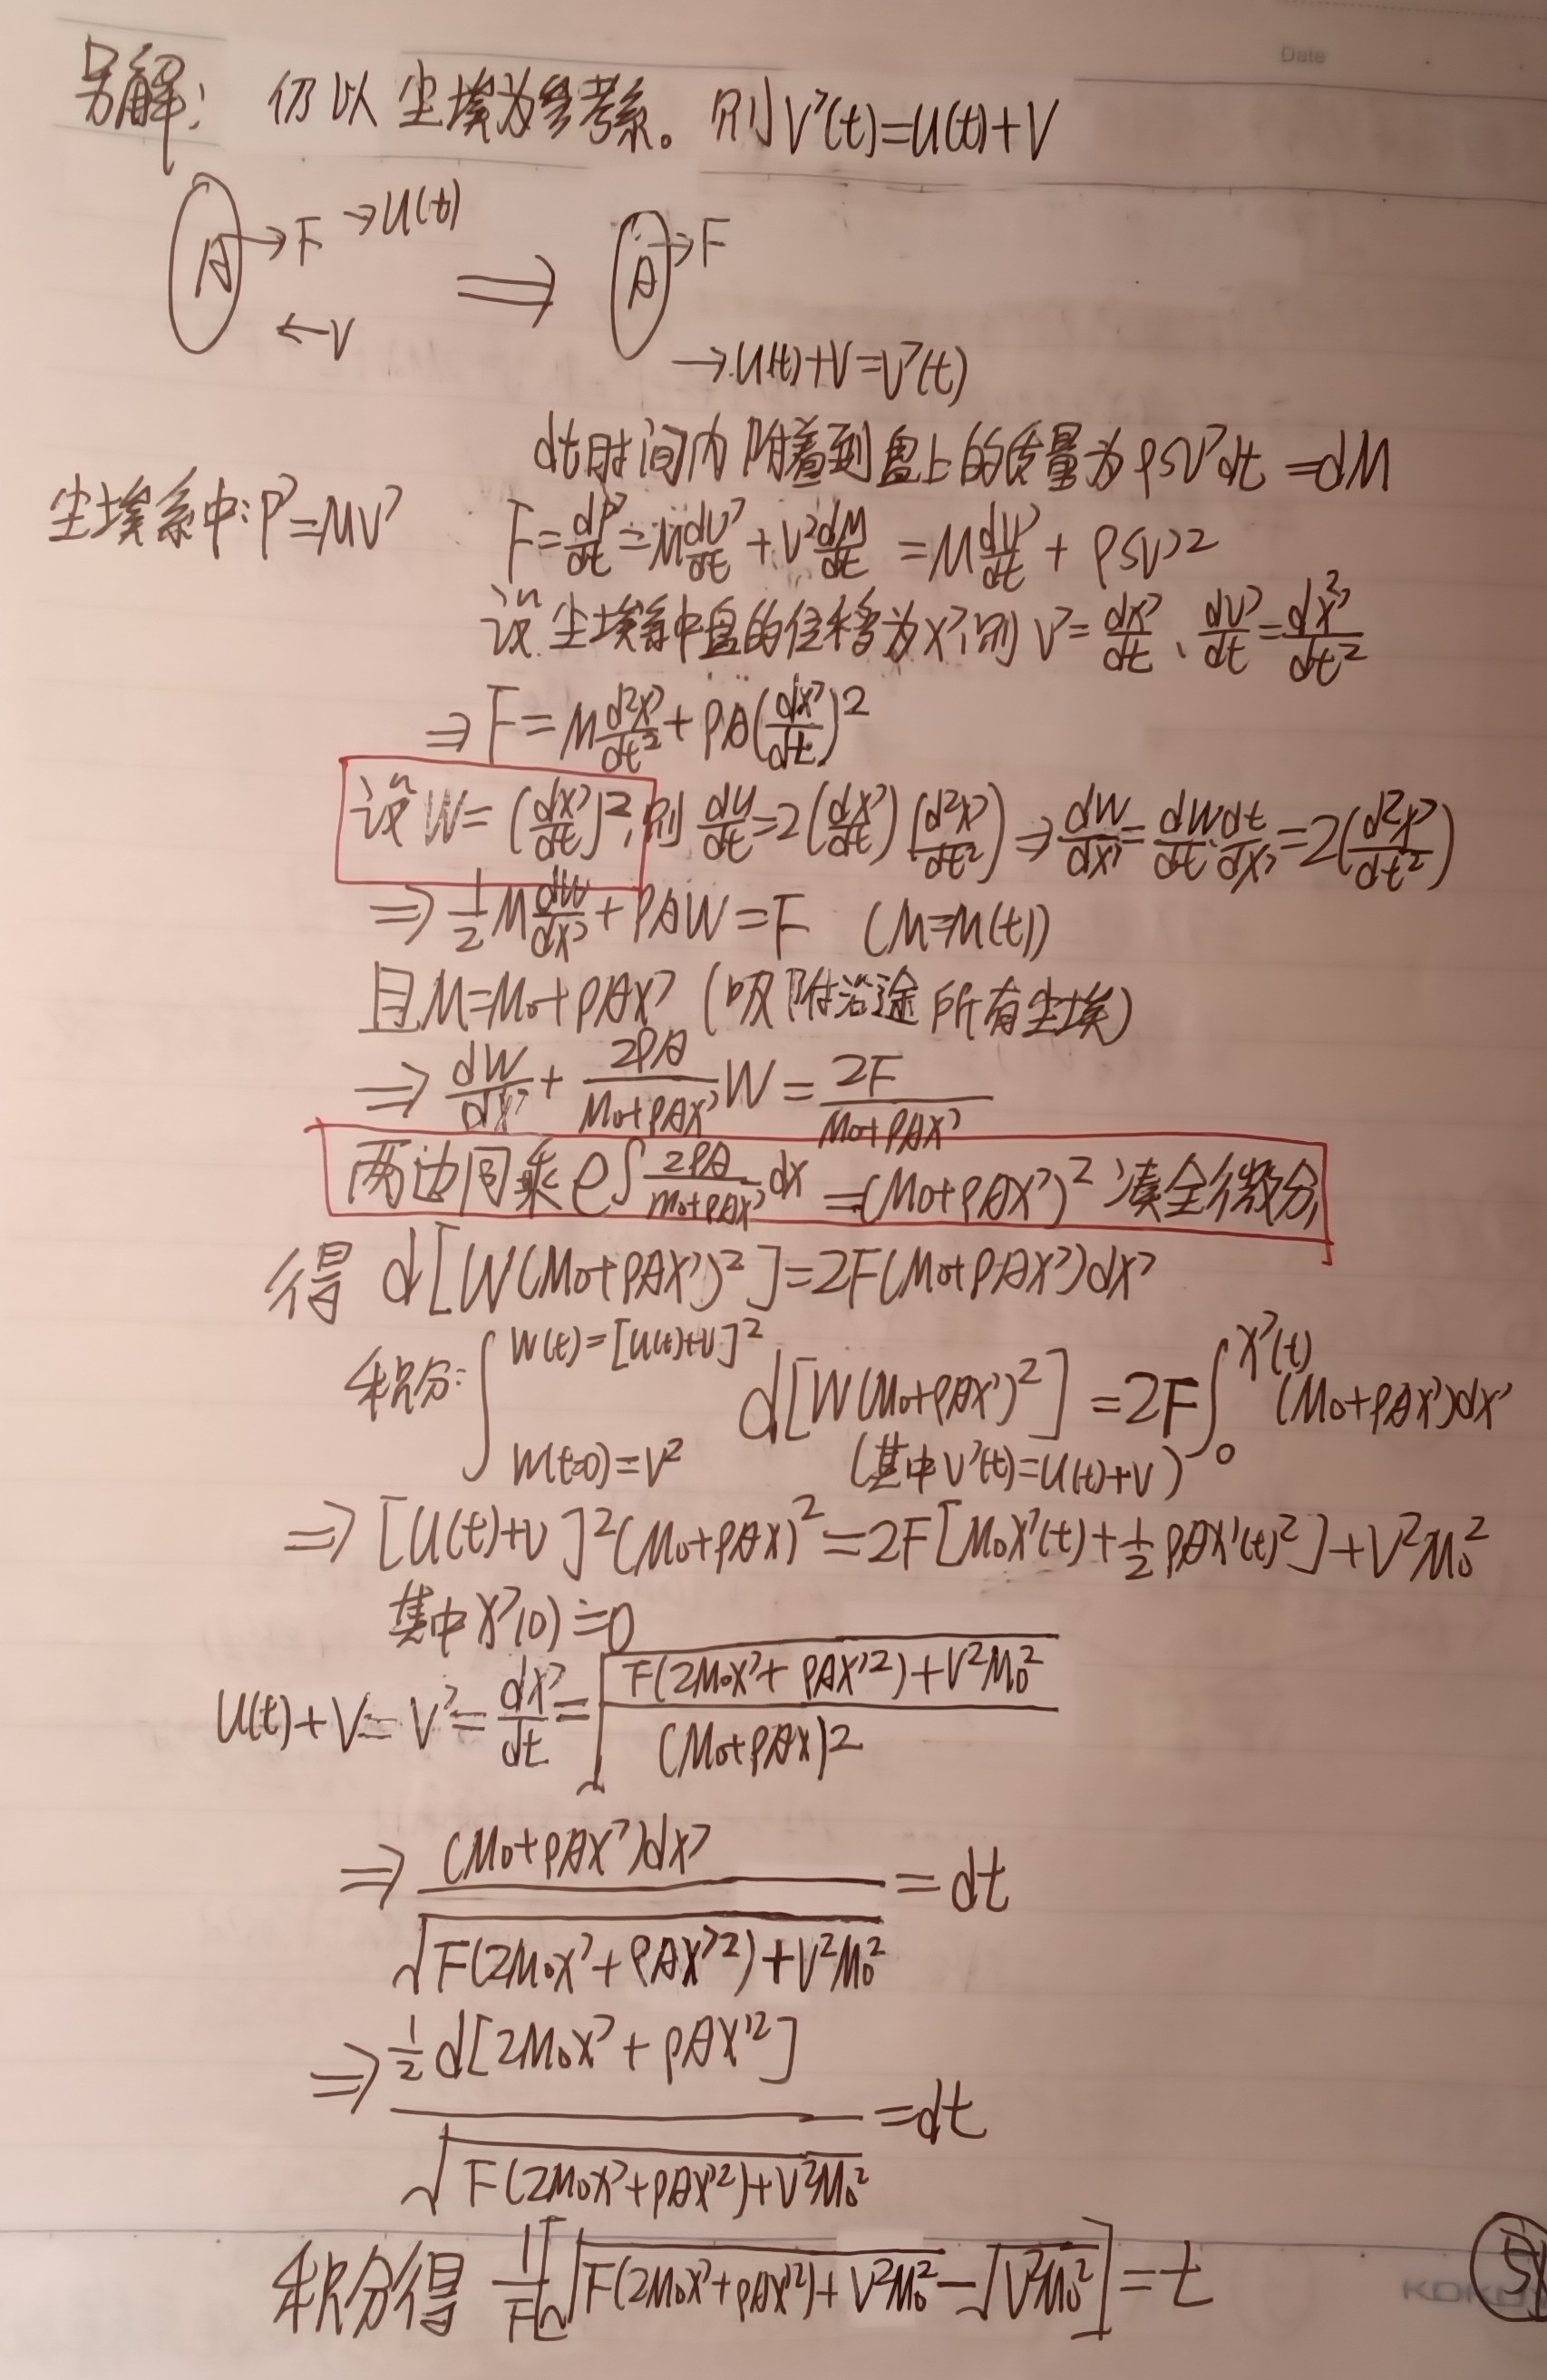 Date
另解: 仍以尘埃为参考系。则V'(t)=U(t)+V
A →F →U(t) ⟹ A →F
←V
→U(t)+V=V'(t)
dt时间内附着到盘上的质量为ρSV'dt=dM
尘埃系中:P'=MV' F=dP'/dt=M dV'/dt+V' dM/dt=M dV'/dt+ρSV'2
设尘埃系中盘的位移为X',则V'=dX'/dt、dV'/dt=d²X'/dt²
⇒F=M d²X'/dt²+ρA(dX'/dt)²
设W=(dX'/dt)²,则dW/dt=2(dX'/dt)(d²X'/dt²)⇒dW/dX'=dW/dt·dt/dX'=2(d²X'/dt²)
⇒1/2 M dW/dX'+ρAW=F (M=M(t))
且M=M₀+ρAX' (吸附沿途所有尘埃)
⇒dW/dX'+2ρA/(M₀+ρAX') W=2F/(M₀+ρAX')
两边同乘e^∫2ρA/(M₀+ρAX')dX=(M₀+ρAX')²凑全微分,
得 d[W(M₀+ρAX')²]=2F(M₀+ρAX')dX'
积分:∫_{W(t=0)=V²}^{W(t)=[U(t)+V]²} d[W(M₀+ρAX')²]=2F∫_0^{X'(t)}(M₀+ρAX')dX'
(其中V'(t)=U(t)+V)
⇒[U(t)+V]²(M₀+ρAX)²=2F[M₀X'(t)+1/2 ρAX'(t)²]+V²M₀²
其中X'(0)=0
U(t)+V=V'=dX'/dt=√(F(2M₀X'+ρAX'²)+V²M₀²/(M₀+ρAX)²)
⇒(M₀+ρAX')dX'/√(F(2M₀X'+ρAX'²)+V²M₀²)=dt
⇒1/2 d[2M₀X'+ρAX'²]/√(F(2M₀X'+ρAX'²)+V²M₀²)=dt
积分得 1/F[√(F(2M₀X'+ρAX'²)+V²M₀²)-√(V²M₀²)]=t